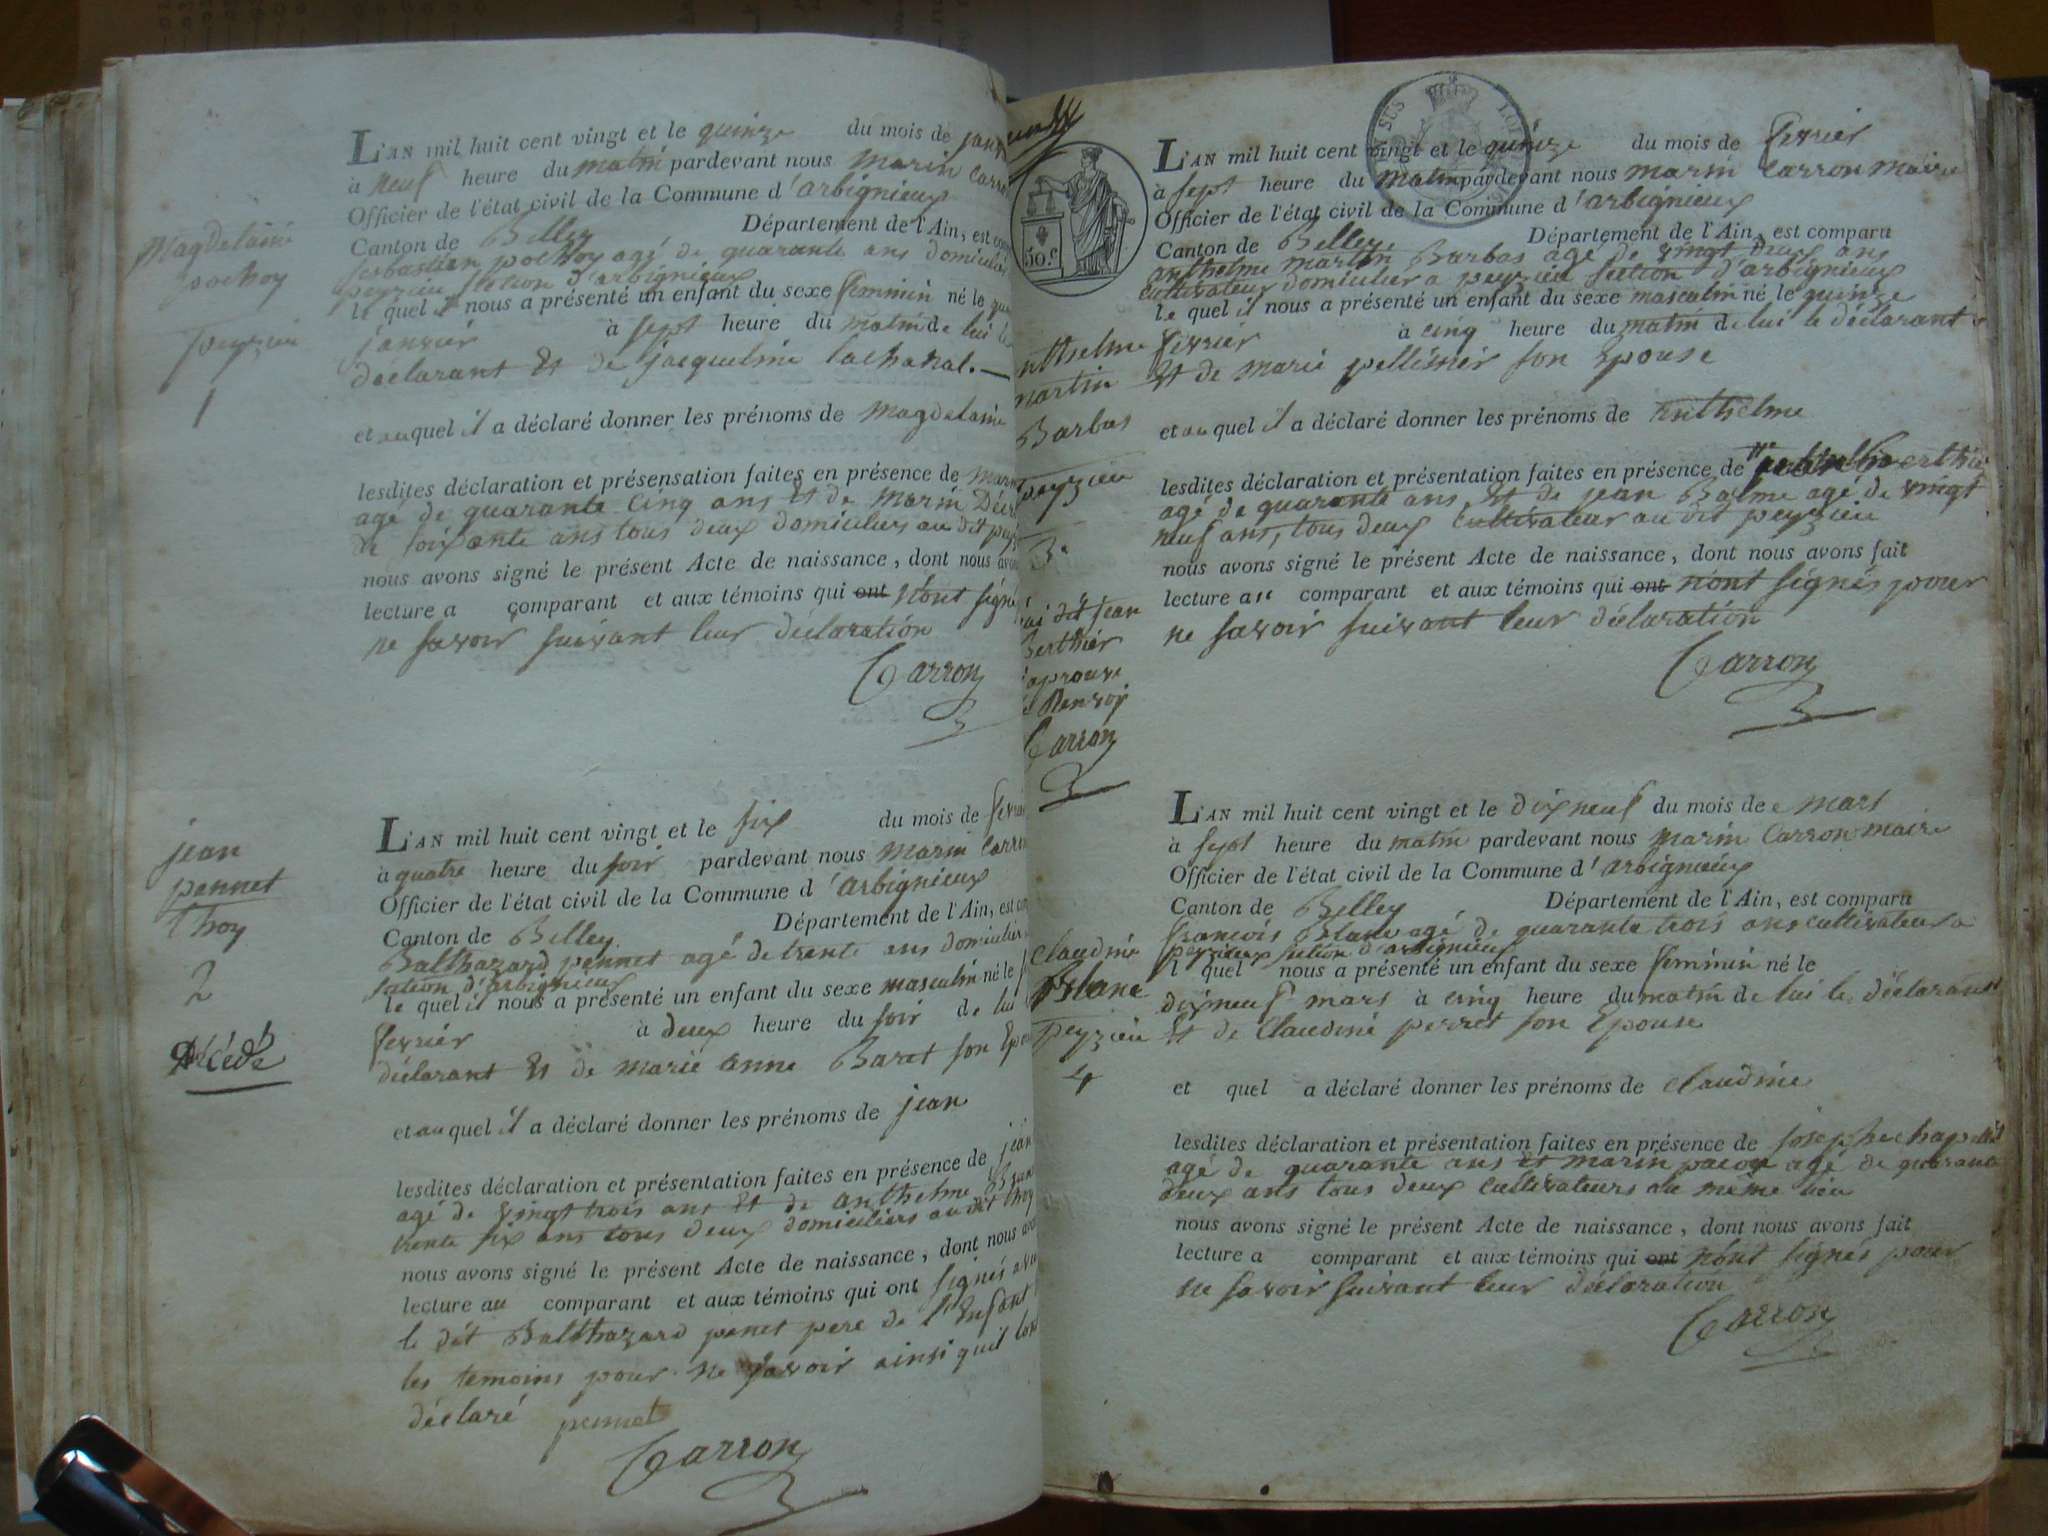 Magdelaine
pochoy
peyzieu
1
L'AN mil huit cent vingt et le quinze du mois de janv
à neuf heure du matin pardevant nous marin Carron
Officier de l'état civil de la Commune d'arbignieux
Canton de Belley Département de l'Ain, est com
sebastien pochoy agé de quarante ans domicilié
peyzieu section d'arbignieux
le quel il nous a présenté un enfant du sexe feminin né le
janvier à sept heure du matin de lui le
déclarant Et de jacqueline lachanal.
et au quel il a déclaré donner les prénoms de magdelaine
lesdites déclaration et présensation faites en présence de
agé de quarante cinq ans Et de marin
de soixante ans tous deux domiciliers au dit
nous avons signé le présent Acte de naissance, dont nous avons
lecture a comparant et aux témoins qui ont n'ont signé
ne savoir suivant leur déclaration
Carron
jean
pennet
thoy
2
Décédé
L'AN mil huit cent vingt et le six du mois de fevrier
à quatre heure du soir pardevant nous marin Carron
Officier de l'état civil de la Commune d'arbignieux
Canton de Belley Département de l'Ain, est com
Balthazard pennet agé de trente ans domicilié
section d'arbignieux
le quel il nous a présenté un enfant du sexe masculin né le
fevrier à deux heure du soir de lui
déclarant Et de marie anne Baret son Epouse
et au quel il a déclaré donner les prénoms de jean
lesdites déclaration et présentation faites en présence de jean
agé de vingt trois ans Et de anthelme
trente six ans tous deux domiciliers au dit thoy
nous avons signé le présent Acte de naissance, dont nous avons
lecture au comparant et aux témoins qui ont signés
le dit Balthazard penet pere de l'Enfant
les temoins pour ne savoir ainsi quil
déclaré pennet
Carron
50.c
anthelme
martin
Barbas
peyzieu
3.
dit jean
Berthier
aprouve
le Renvoy
Carron
L'AN mil huit cent vingt et le quinze du mois de fevrier
à sept heure du matin pardevant nous marin Carron maire
Officier de l'état civil de la Commune d'arbignieux
Canton de Belley Département de l'Ain, est comparu
anthelme martin Barbas agé de vingt deux ans
cultivateur domicilier a peyzieu section d'arbignieux
le quel il nous a présenté un enfant du sexe masculin né le quinze
fevrier à cinq heure du matin de lui le déclarant
Et de marie pellissier son Epouse
et au quel il a déclaré donner les prénoms de anthelme
lesdites déclaration et présentation faites en présence de
agé de quarante ans Et de jean Balme agé de vingt
neuf ans, tous deux cultivateur au dit peyzieu
nous avons signé le présent Acte de naissance, dont nous avons fait
lecture au comparant et aux témoins qui ont n'ont signés pour
ne savoir suivant leur déclaration
Carron
claudine
Blanc
peyzieu
4
L'AN mil huit cent vingt et le dix neuf du mois de mars
à sept heure du matin pardevant nous marin Carron maire
Officier de l'état civil de la Commune d'arbignieux
Canton de Belley Département de l'Ain, est comparu
francois Blanc agé de quarante trois ans cultivateur a
peyzieux section d'arbignieux
l quel nous a présenté un enfant du sexe feminin né le
dix neuf mars à cinq heure du matin de lui le déclarant
Et de Claudine perret son Epouse
et quel a déclaré donner les prénoms de claudine
lesdites déclaration et présentation faites en présence de
agé de quarante ans et marin pacou agé de quarante
deux ans tous deux cultivateurs au même lieu
nous avons signé le présent Acte de naissance, dont nous avons fait
lecture a comparant et aux témoins qui ont n'ont signés pour
ne savoir suivant leur déclaration
Carron